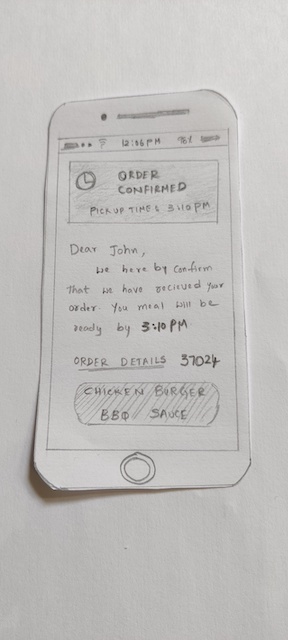 12:36 PM 76%
ORDER
CONFIRMED
PICKUP TIME: 3:10 PM
Dear John,
we here by confirm
That we have recieved your
order. You meal will be
ready by 3:10 PM
ORDER DETAILS 37024
CHICKEN BURGER
BBQ SAUCE